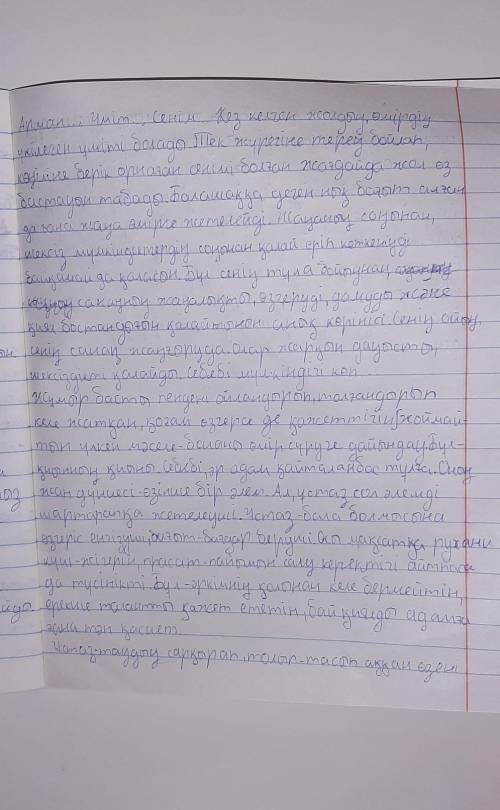 Арман... Үміт... Сенім... Кез келген жолдың, өмірдің
үкілеген үміті болады. Тек жүрегіңе терең бойлап,
көңіліңе берік орнаған сенім болған жағдайда жол өз
бастауын табады. Болашаққа деген нық бағыт алған
да ғана жаңа өмірге жетелейді. Жаңаның соңынан,
шексіз мүмкіндіктердің соңынан қалай еріп кеткеніңді
байқамай да қаласың. Бұл сенің тұла бойыңнан
сананың жаңалықты, өзгеруді, дамуды және
қиял бостандығын қалайтынын анық көрінісі. Сенің ойың,
сенің санаң жаңғыруда. Олар жарқын дауысты,
шексіздікті қалайды. Себебі мүмкіндігі көп.
Жұмыр басты пендені ойландырып, толғандырып
келе жатқан, қоғам өзгерсе де қажеттігін жоймай-
тын үлкен мәселе-баланы өмір сүруге дайындау. Бұл-
қиынның қиыны. Себебі, әр адам қайталанбас тұлға. Оның
жан дүниесі-өзінше бір әлем. Ал, ұстаз сол әлемді
шартарапқа жетелеуші. Ұстаз-бала болмысына
өзгеріс енгізуші, бағыт-бағдар беруші. Бұл мақсатқа рухани
күш-жігерін, парасат-пайымын салу керектігі айтпаса
да түсінікті. Бұл-әркімнің қолынан келе бермейтін,
ерекше талантты қажет ететін, бай қиялды адамға
ғана тән қасиет.
Ұстаз-таудың сарқырап, толып-тасып аққан өзені